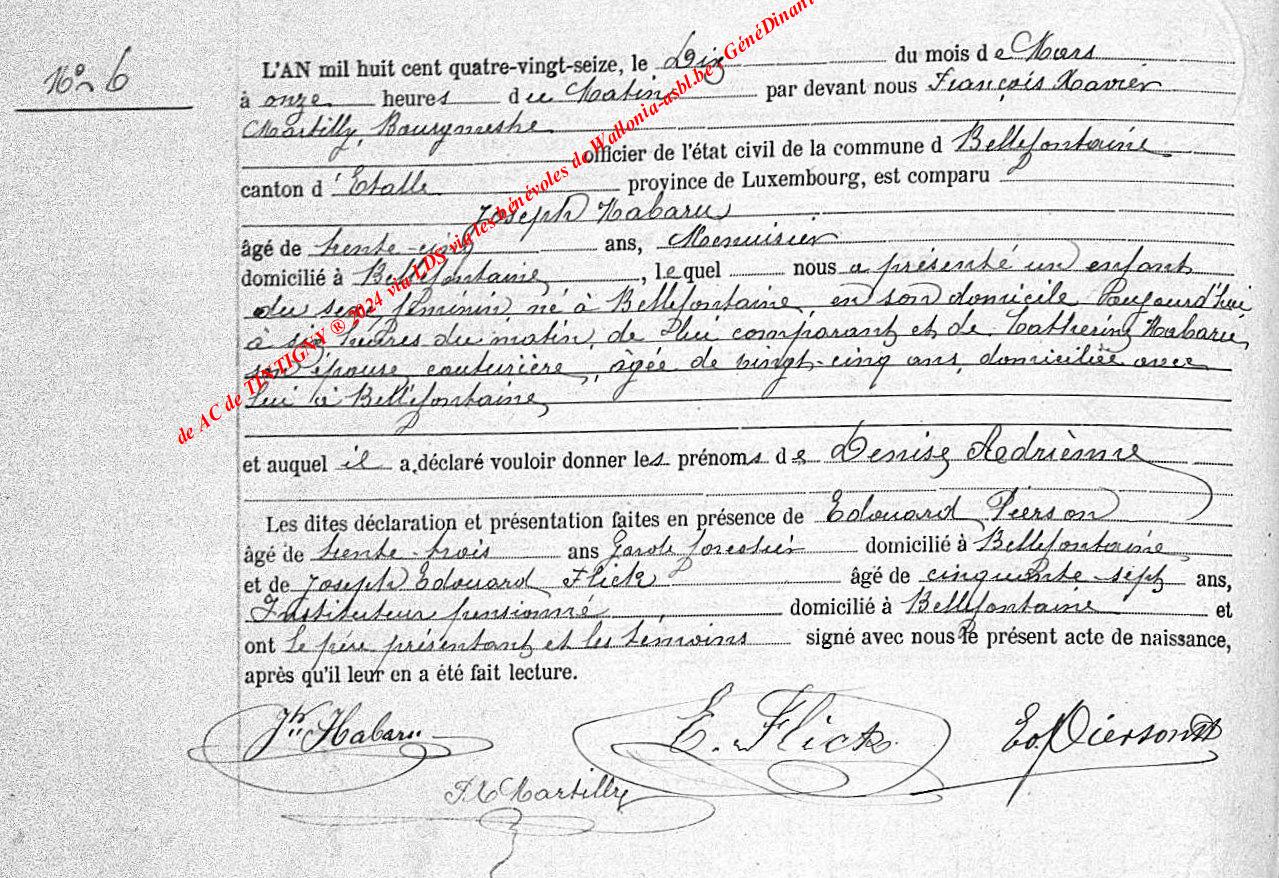 N° 6
L'AN mil huit cent quatre-vingt-seize, le Dix du mois de Mars
à onze heures du Matin par devant nous François Xavier
Martilly, Bourgmestre
officier de l'état civil de la commune d Bellefontaine
canton d'Etalle province de Luxembourg, est comparu
Joseph Habaru
âgé de trente-cinq ans, Menuisier
domicilié à Bellefontaine, lequel nous a présenté un enfant
du sexe féminin, né à Bellefontaine, en son domicile, aujourd'hui,
à six heures du matin, de lui comparant et de Catherine Habaru,
son épouse, couturière, âgée de vingt-cinq ans, domiciliée avec
lui à Bellefontaine,
et auquel il a déclaré vouloir donner les prénoms de Denise Adrienne
Les dites déclaration et présentation faites en présence de Edouard Pierson
âgé de trente-trois ans Garde forestier domicilié à Bellefontaine
et de Joseph Edouard Flick âgé de cinquante-sept ans,
Instituteur pensionné domicilié à Bellefontaine et
ont le père présentant et les témoins signé avec nous le présent acte de naissance,
après qu'il leur en a été fait lecture.
Jh Habaru E. Flick Ed. Pierson
F X Martilly
de AC de TINTIGNY ® 2024 via LDS via les bénévoles de Wallonia-asbl.be - GénéDinant